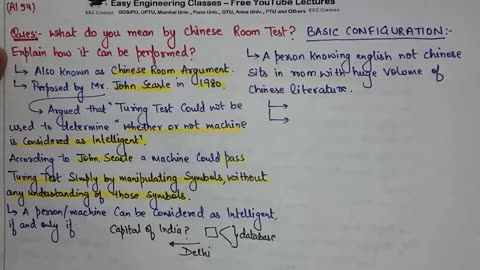 (AI 54)
Easy Engineering Classes – Free YouTube Lectures
EEC Classes GGSIPU, UPTU, Mumbai Univ., Pune Univ., GTU, Anna Univ., PTU and Others EEC Classes
Ques:- What do you mean by Chinese Room Test?
Explain how it can be performed?
↳ Also Known as Chinese Room Argument.
↳ Proposed by Mr. John Searle in 1980.
↳ Argued that "Turing Test Could not be
used to determine "whether or not machine
is Considered as Intelligent".
According to John Searle a machine Could pass
Turing Test Simply by manipulating Symbols, without
any understanding of those Symbols.
↳ A person/machine Can be Considered as Intelligent,
if and only if
Capital of India?
database
Delhi
BASIC CONFIGURATION:-
↳ A person Knowing english not chinese
Sits in room with huge Volume of
Chinese literature.